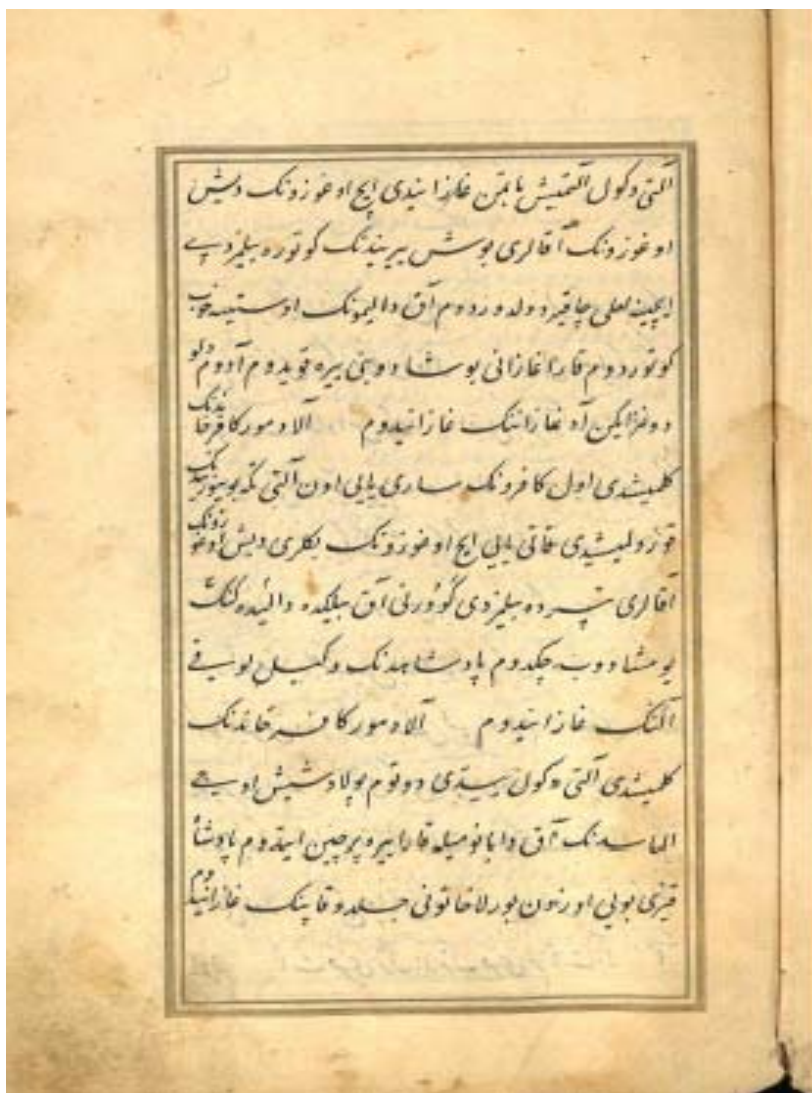 آلتی دکول آلتمیش باتمن غازانیدی ایچ اوغوزونک دیش
اوغوزونک آقالری بوش یریندنک کوتوره بیلمزدی
ایچینه لعلی چاقیر دولدوردوم آق دالیمونک اوستینه
کوتوردوم قارا غازانی بوشادوبنی ییره قویدوم آدوم دلو
دونمز ایکن آد غازاننک غازانیدوم آلا دمور کافر خاندنک
کلمیشدی اول کافرونک ساری یایی اون آلتی تکه بوینوزیندنک
قوزولمیشدی قاتی یایی ایچ اوغوزونک یکری دیش اوغوزونک
آقالری بیلمزدی آق بیلکده
یومشادوب چکدوم پادشاهدنک
آلنک غازانیدوم آلا دمور کافر خاندنک
کلمیشدی آلتی دکول دوتوم پولاد شیش اوجی
الماسدنک آق دابانومیله قارا ییره پرچین ایتدوم پادشاه
قیزی بویی اوزون بورلا خاتونی جلدو قاپنک غازانیدوم